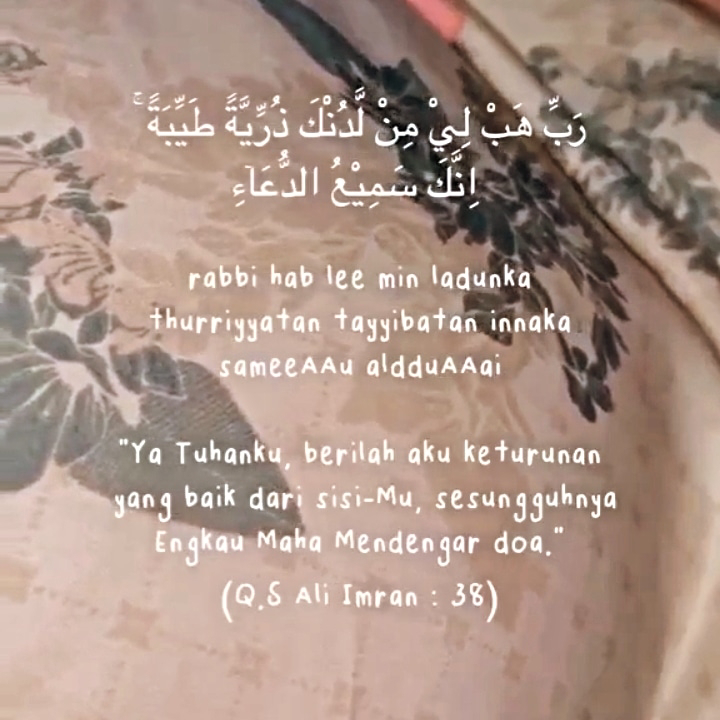 رَبِّ هَبْ لِيْ مِنْ لَّدُنْكَ ذُرِّيَّةً طَيِّبَةً ۚ
اِنَّكَ سَمِيْعُ الدُّعَاۤءِ
rabbi hab lee min ladunka
thurriyyatan tayyibatan innaka
sameeAAu aldduAAai
"Ya Tuhanku, berilah aku keturunan
yang baik dari sisi-Mu, sesungguhnya
Engkau Maha Mendengar doa."
(Q.S Ali Imran : 38)